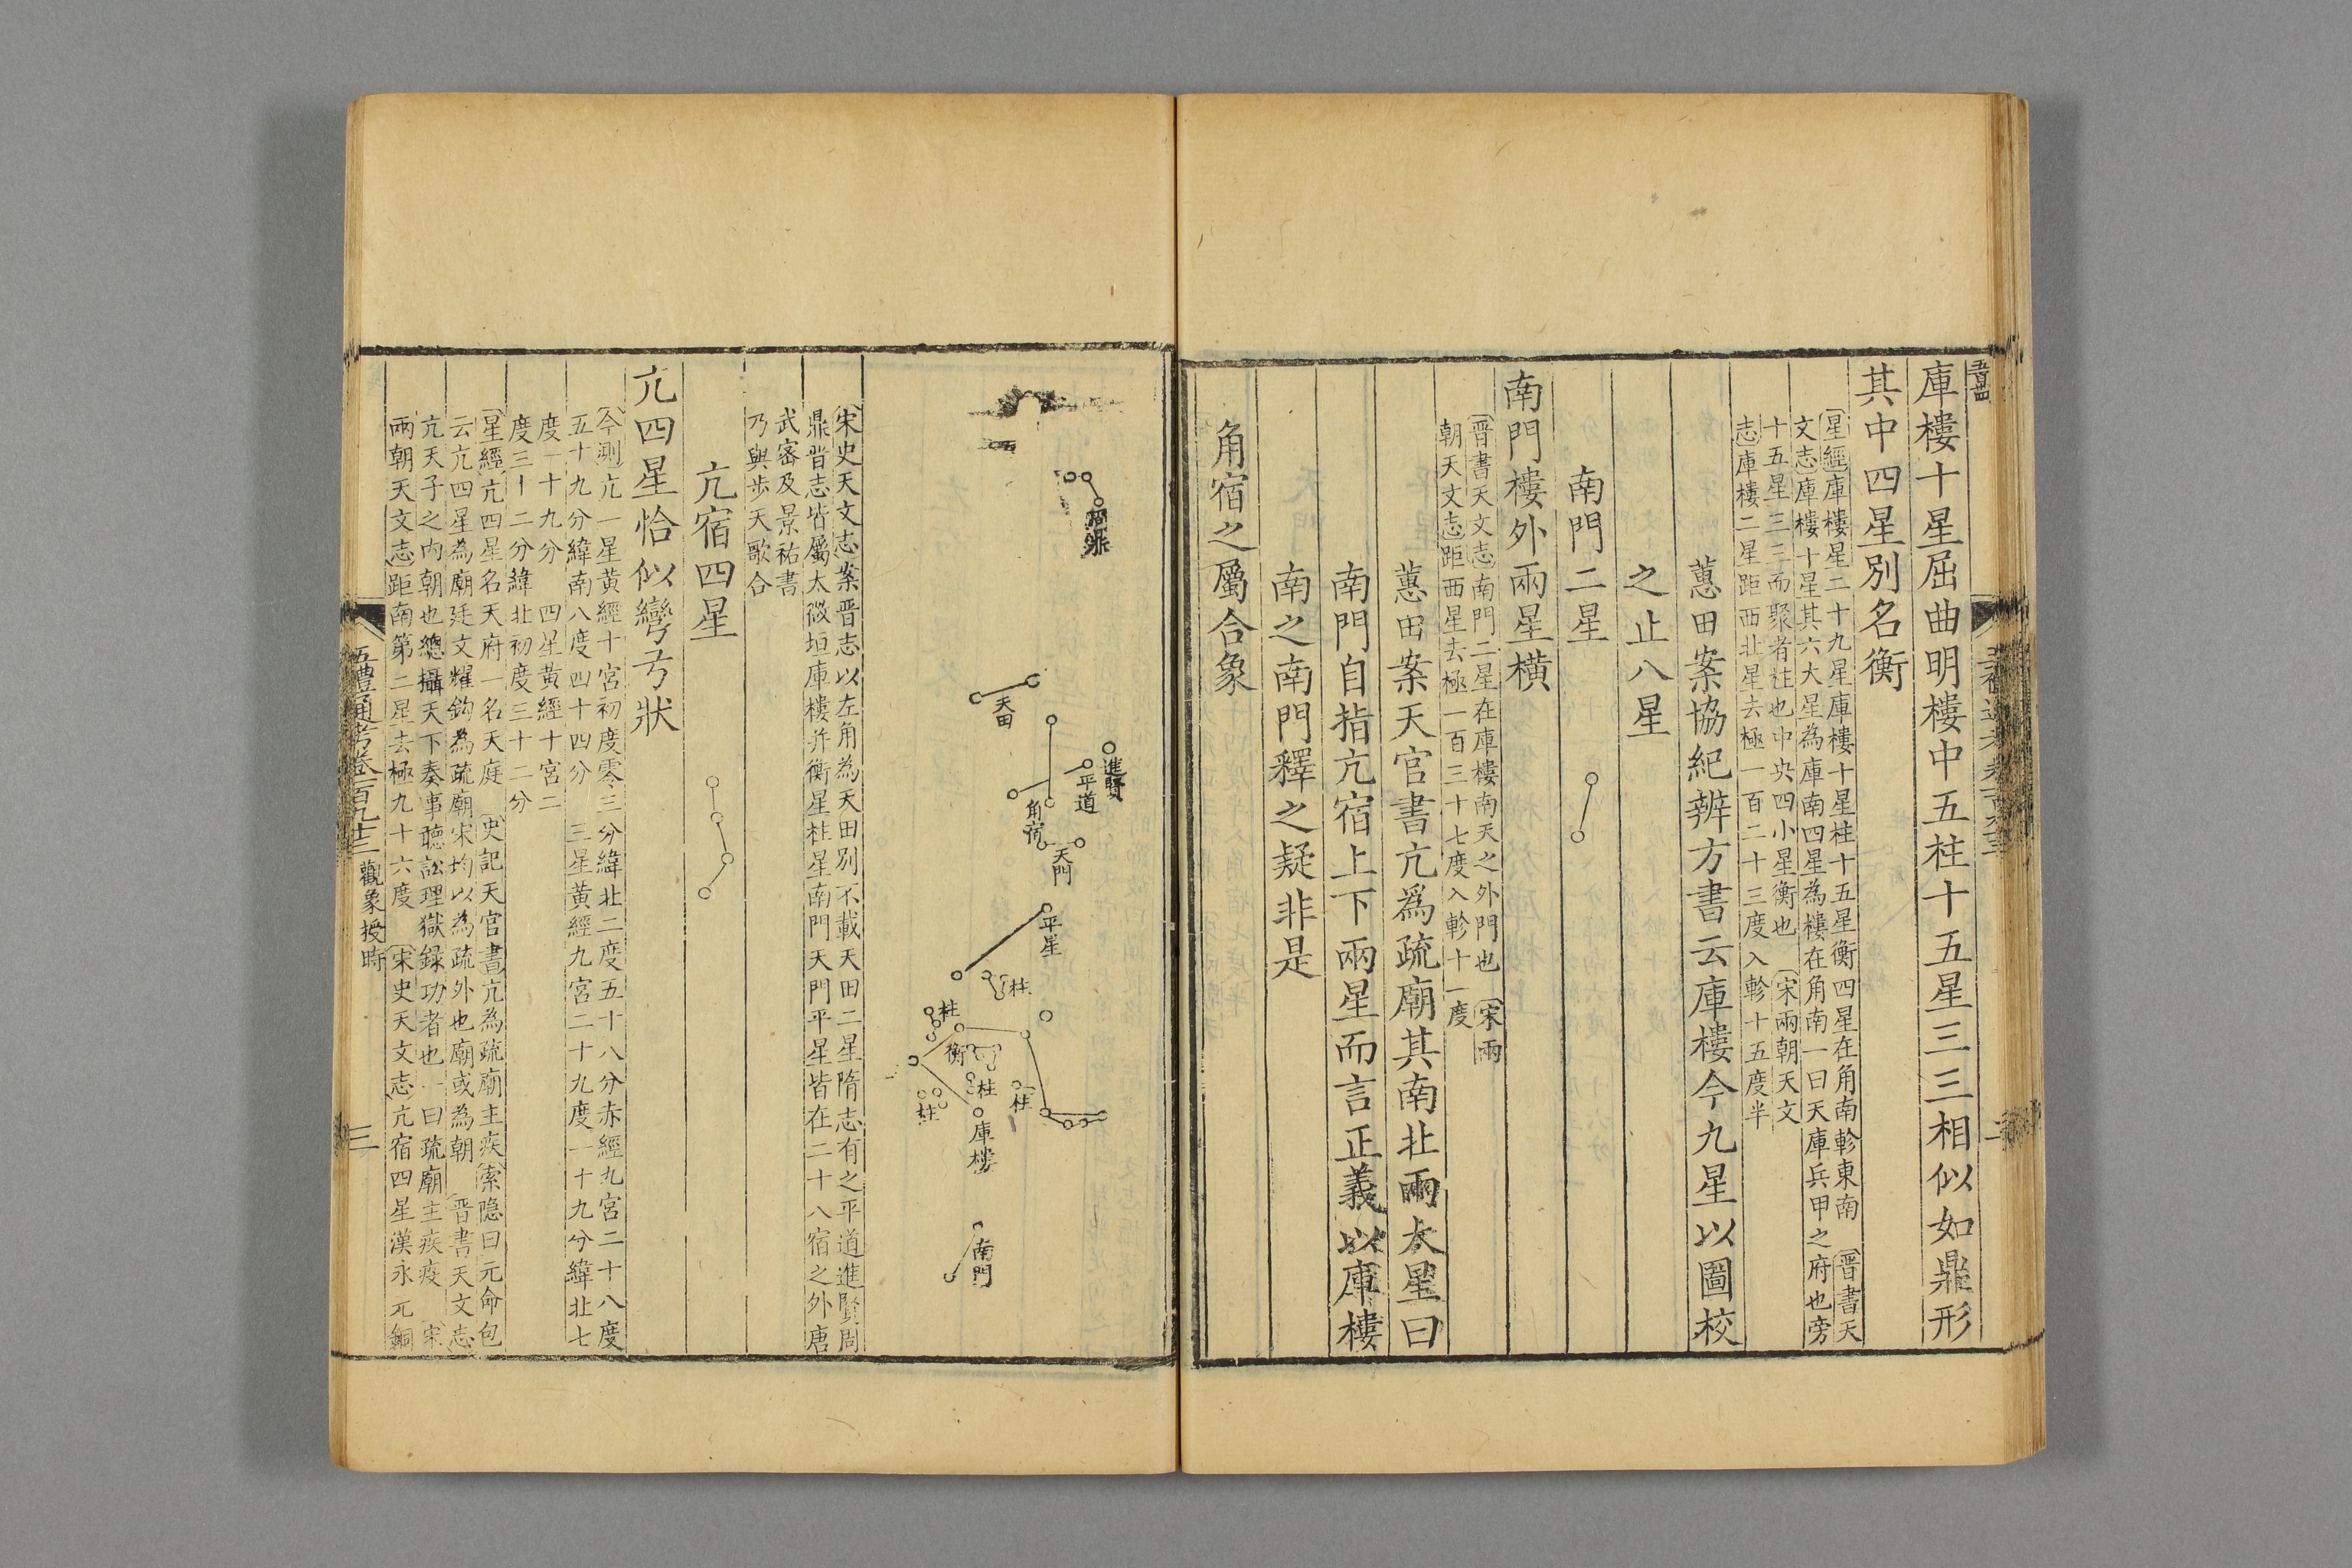 庫樓十星屈曲明樓中五柱十五星三三相似如鼎形
其中四星別名衡
星經庫樓星二十九星庫樓十星柱十五星衡四星在角南軫東南 晉書天
文志庫樓十星其六大星為庫南四星為樓在角南一曰天庫兵甲之府也旁
十五星三三而聚者柱也中央四小星衡也 宋兩朝天文
志庫樓二星距西北星去極一百二十三度入軫十五度半
蕙田案協紀辨方書云庫樓今九星以圖校
之止八星
南門二星
南門樓外兩星橫
晉書天文志南門二星在庫樓南天之外門也 宋兩
朝天文志距西星去極一百三十七度入軫十一度
蕙田案天官書亢爲疏廟其南北兩大星曰
南門自指亢宿上下兩星而言正義以庫樓
南之南門釋之疑非是
角宿之屬合象
進賢
平道
天田
角宿
天門
平星
柱
柱
衡
柱
柱
柱
庫樓
南門
宋史天文志案晉志以左角為天田別不載天田二星隋志有之平道進賢周
鼎晉志皆屬太微垣庫樓并衡星柱星南門天門平星皆在二十八宿之外唐
武密及景祐書
乃與步天歌合
亢宿四星
亢四星恰似彎弓狀
今測亢一星黃經十宮初度零三分緯北二度五十八分赤經九宮二十八度
五十九分緯南八度四十四分 三星黃經九宮二十九度一十九分緯北七
度一十九分 四星黃經十宮二
度三十二分緯北初度三十二分
星經亢四星名天府一名天庭 史記天官書亢為疏廟主疾索隐曰元命包
云亢四星為廟廷文耀鈎為疏廟宋均以為疏外也廟或為朝 晋書天文志
亢天子之内朝也總攝天下奏事聽訟理獄錄功者也一曰疏廟主疾疫 宋
兩朝天文志距南第二星去極九十六度 宋史天文志亢宿四星漢永元銅
五禮通考卷一百九十三 觀象授時
三